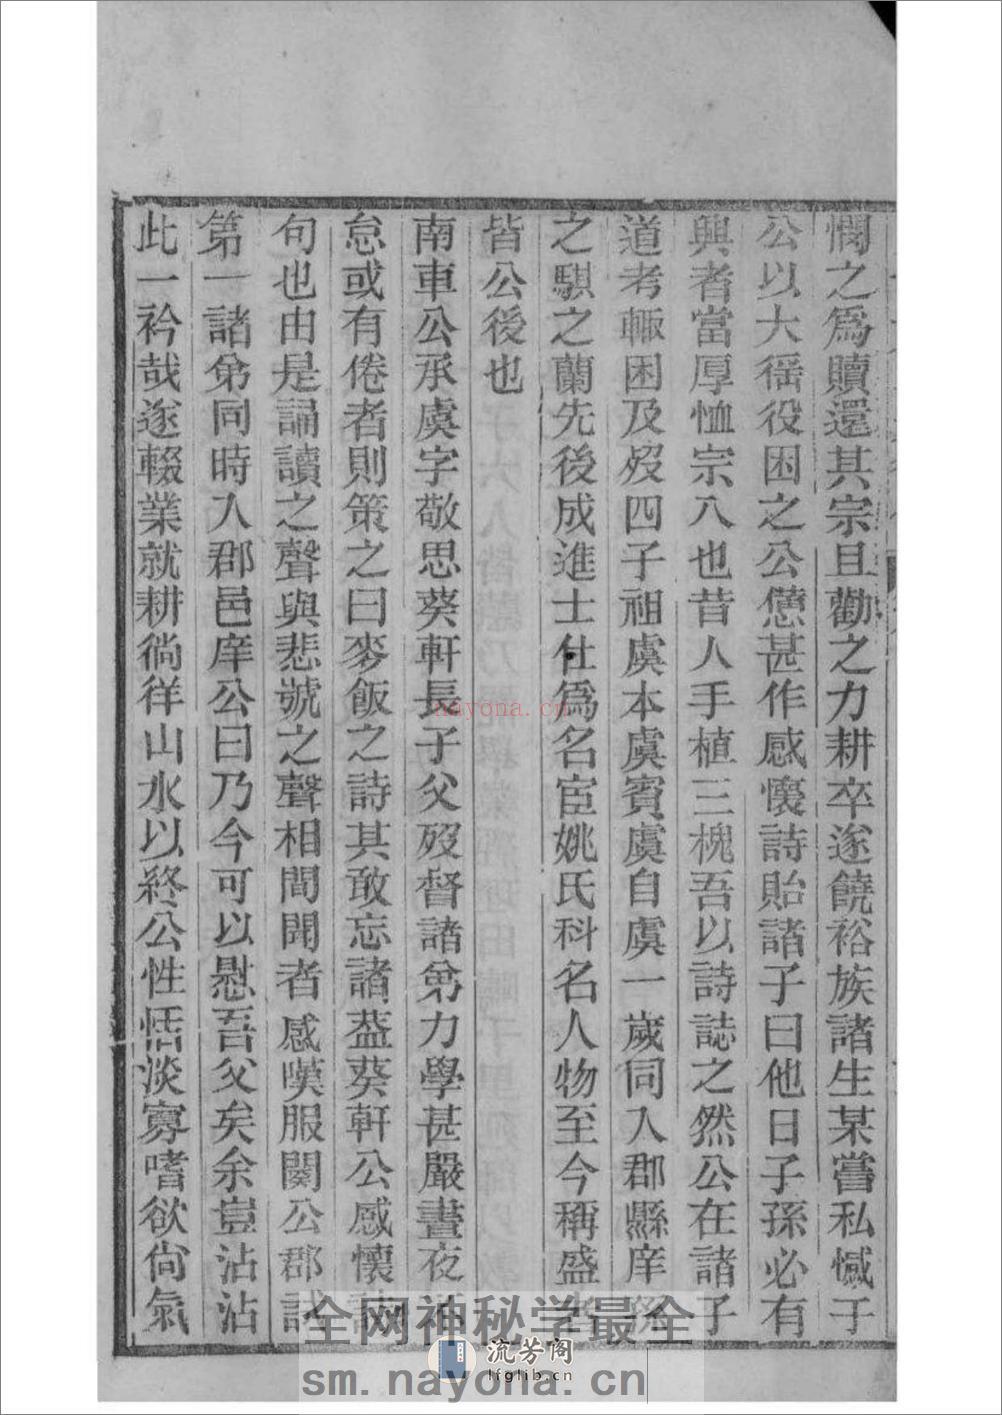 憫之爲贖還其宗且勸之力耕卒遂饒裕族諸生某嘗私憾于
公以大徭役困之公憊甚作感懷詩貽諸子曰他日子孫必有
興者當厚恤宗人也昔人手植三槐吾以詩誌之然公在諸子
道考輒困及歿四子祖虞本虞賓虞自虞一歲同入郡縣庠
之騏之蘭先後成進士仕爲名宦姚氏科名人物至今稱盛
皆公後也
南車公承虞字敬思葵軒長子父歿督諸弟力學甚嚴晝夜
怠或有倦者則策之曰麥飯之詩其敢忘諸葢葵軒公感懷詩
句也由是誦讀之聲與悲號之聲相間聞者感嘆服闋公郡試
第一諸弟同時入郡邑庠公曰乃今可以慰吾父矣余豈沾沾
此一衿哉遂輟業就耕徜徉山水以終公性恬淡寡嗜欲尙氣
nayona.cn
全网神秘学最全
流芳阁
lfglib.cn
sm.nayona.cn